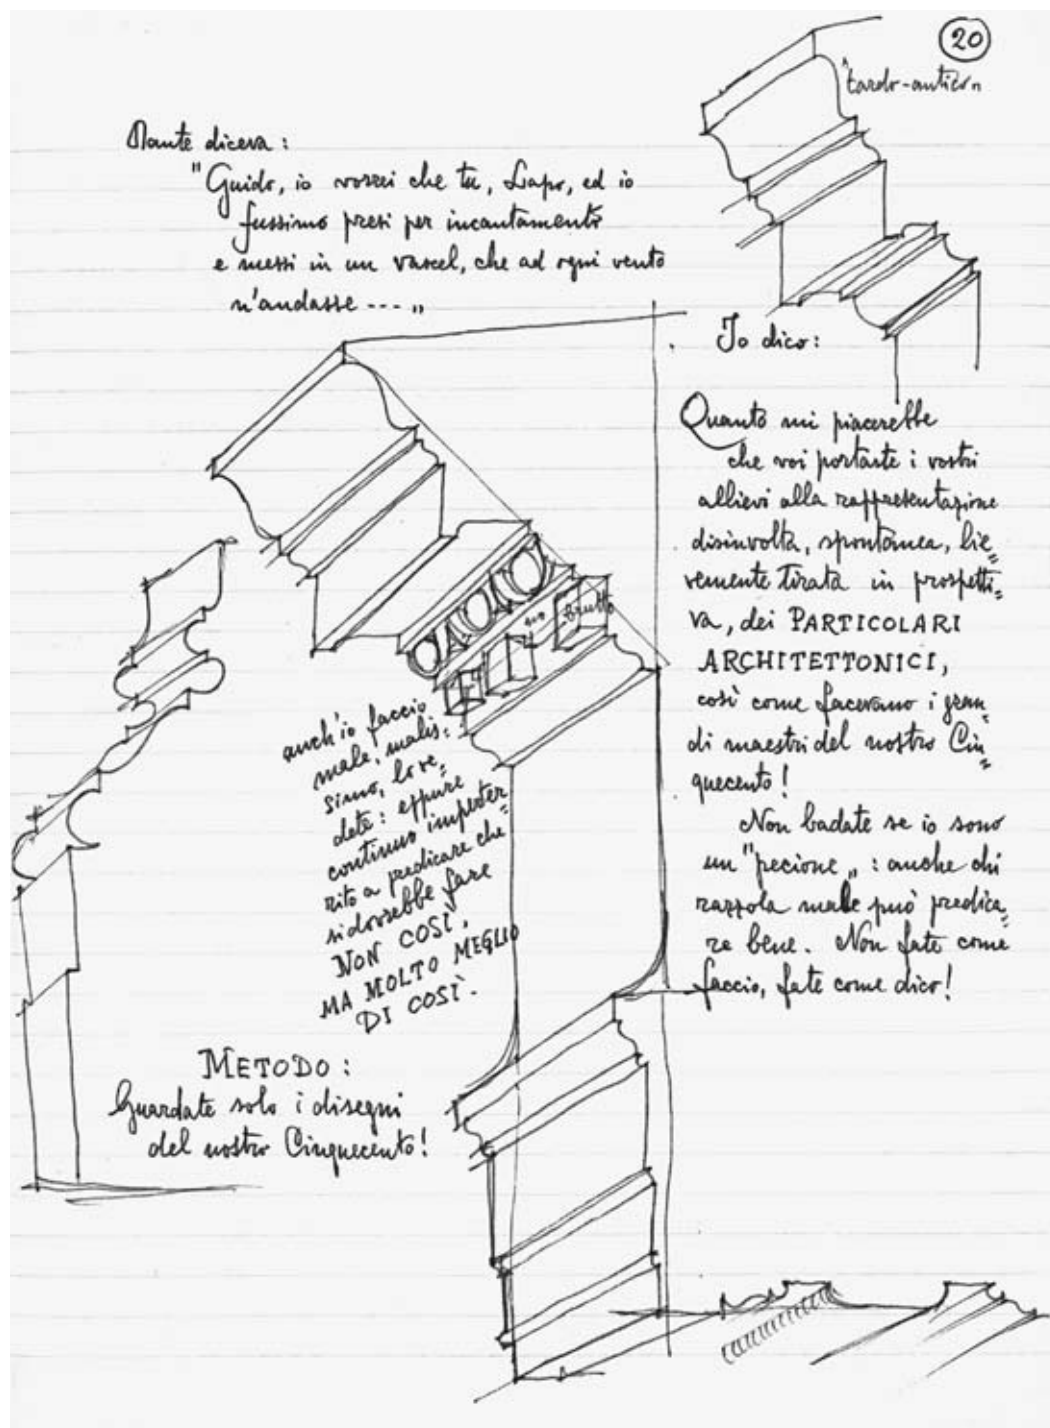 20
"tardo-antico"
Dante diceva:
"Guido, io vorrei che tu, Lapo, ed io
fussimo presi per incantamento
e messi in un vascel, che ad ogni vento
n'andasse ---"
Io dico:
Quanto mi piacerebbe
che voi portaste i vostri
allievi alla rappresentazione
disinvolta, spontanea, lie=
vemente tirata in prospetti=
va, dei PARTICOLARI
ARCHITETTONICI,
così come facevano i gran=
di maestri del nostro Cin=
quecento!
Non badate se io sono
un "pecione": anche chi
razzola male può predica=
re bene. Non fate come
faccio, fate come dico!
brutto
anch'io faccio
male, malis=
simo, lo ve=
dete: eppure
continuo imperter=
rito a predicare che
si dovrebbe fare
NON COSÌ,
MA MOLTO MEGLIO
DI COSÌ.
METODO:
Guardate solo i disegni
del nostro Cinquecento!